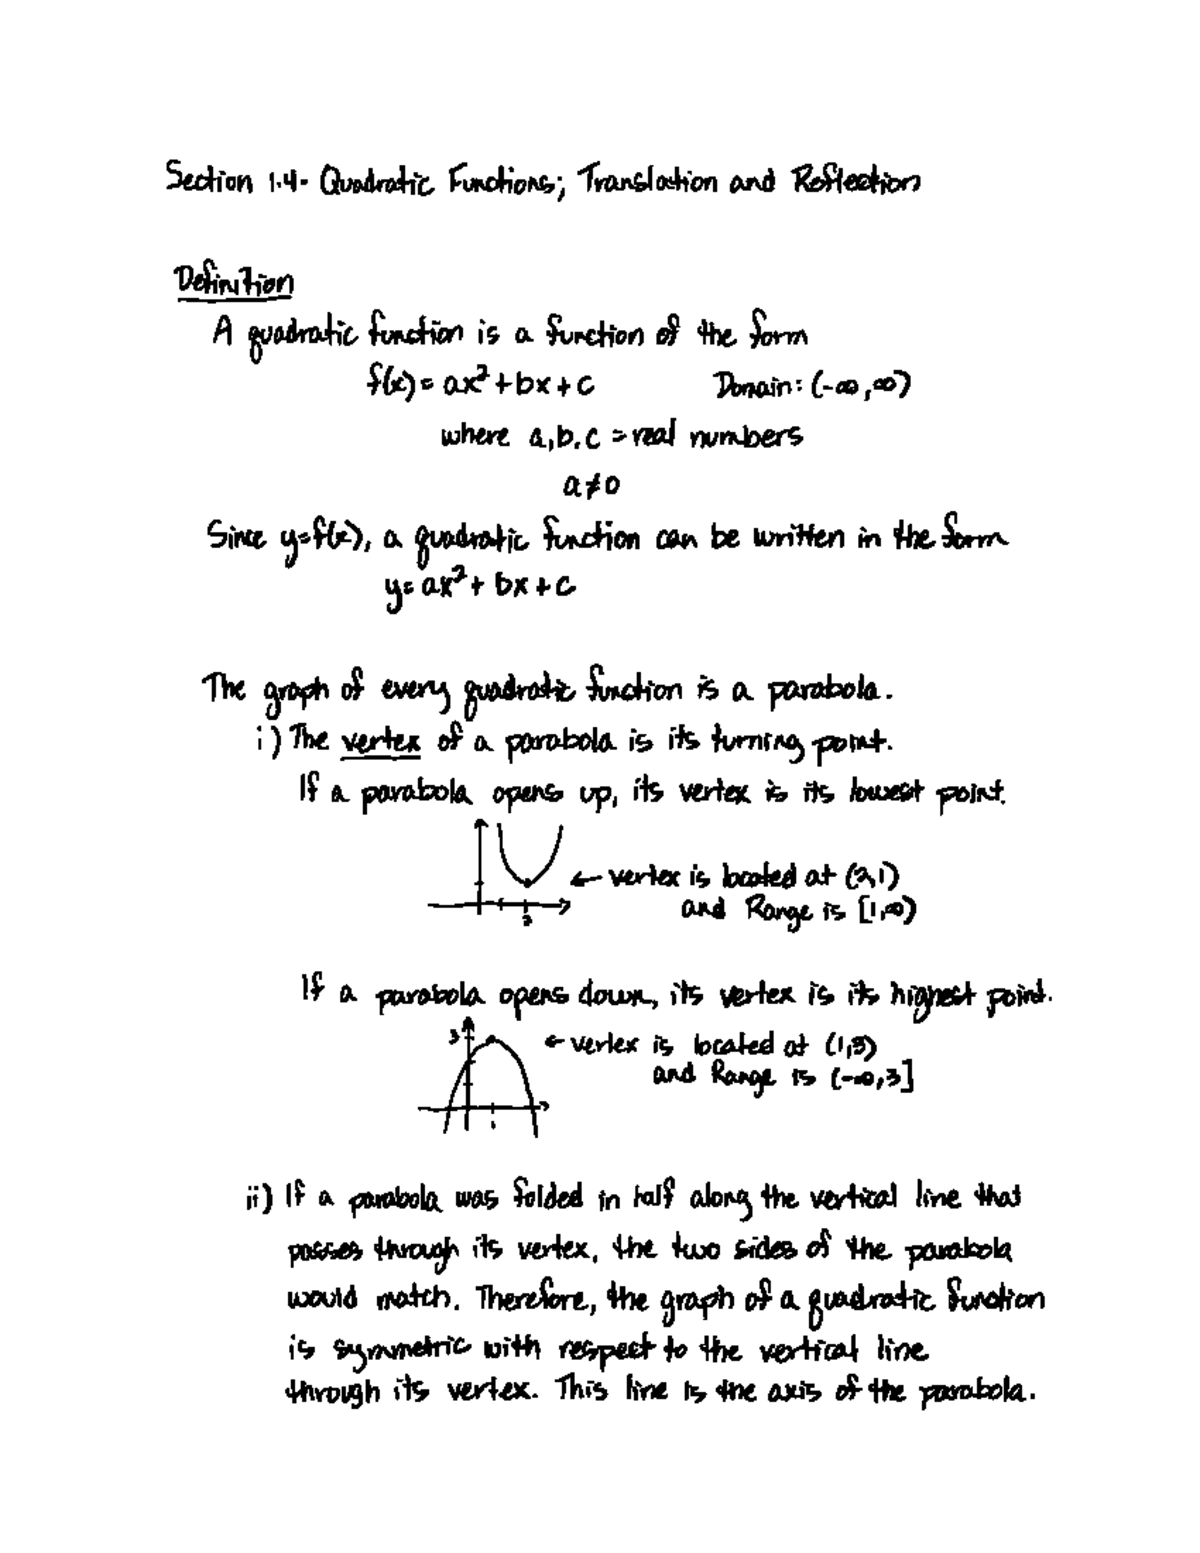 Section 1.4- Quadratic Functions; Translation and Reflection
Definition
A quadratic function is a function of the form
f(x) = ax² + bx + c Domain: (-∞, ∞)
where a, b, c = real numbers
a ≠ 0
Since y=f(x), a quadratic function can be written in the form
y = ax² + bx + c
The graph of every quadratic function is a parabola.
i) The vertex of a parabola is its turning point.
If a parabola opens up, its vertex is its lowest point.
← vertex is located at (2,1)
and Range is [1,∞)
2
If a parabola opens down, its vertex is its highest point.
3
← vertex is located at (1,3)
and Range is (-∞,3]
1
ii) If a parabola was folded in half along the vertical line that
passes through its vertex, the two sides of the parabola
would match. Therefore, the graph of a quadratic function
is symmetric with respect to the vertical line
through its vertex. This line is the axis of the parabola.